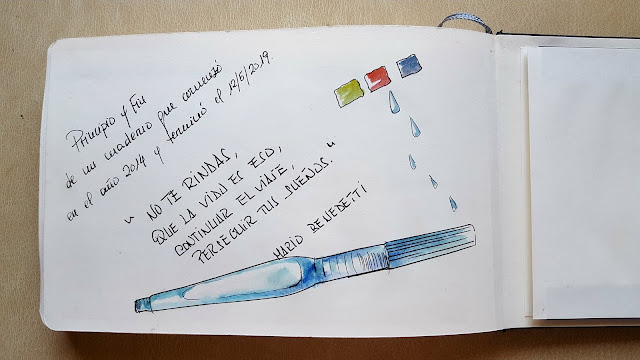 Principio y Fin
de un cuaderno que comenzó
en el año 2014 y terminó el 12/5/2019.
"NO TE RINDAS,
QUE LA VIDA ES ESO,
CONTINUAR EL VIAJE,
PERSEGUIR TUS SUEÑOS."
MARIO BENEDETTI